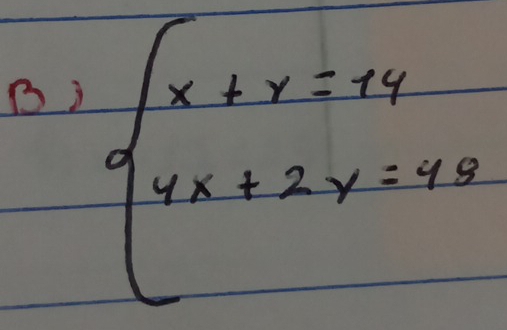 B) x + y = 14
4x + 2y = 48